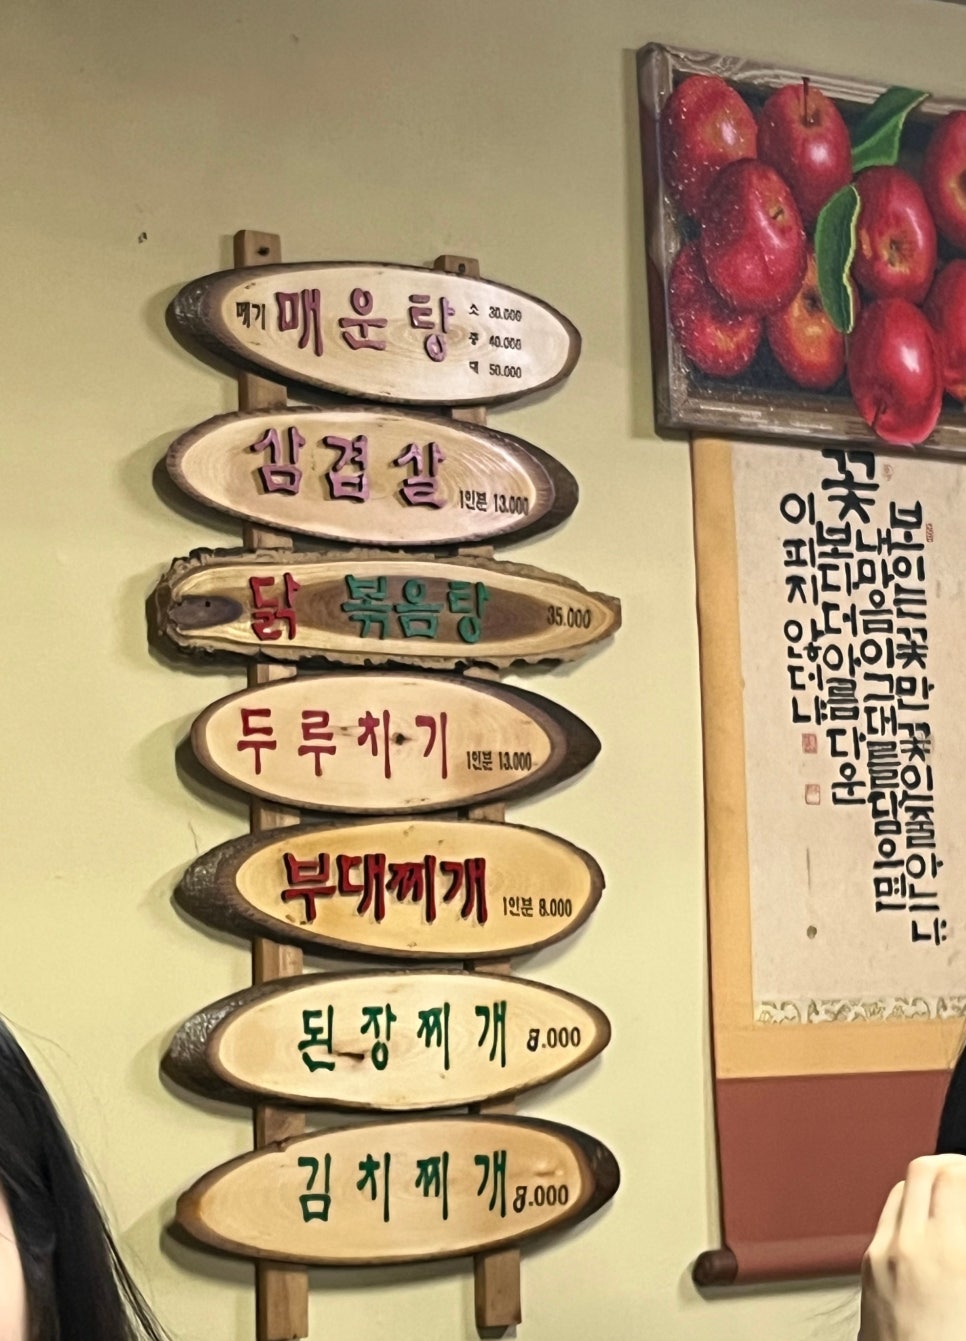 메기 매운탕 소 30.000
중 40.000
대 50.000
삼겹살 1인분 13.000
닭 볶음탕 35.000
두루치기 1인분 13.000
부대찌개 1인분 8.000
된장찌개 8.000
김치찌개 8.000
내 마음이 그대를 닮아 핍
꽃보다 더 아름다운
이 피지 않더냐